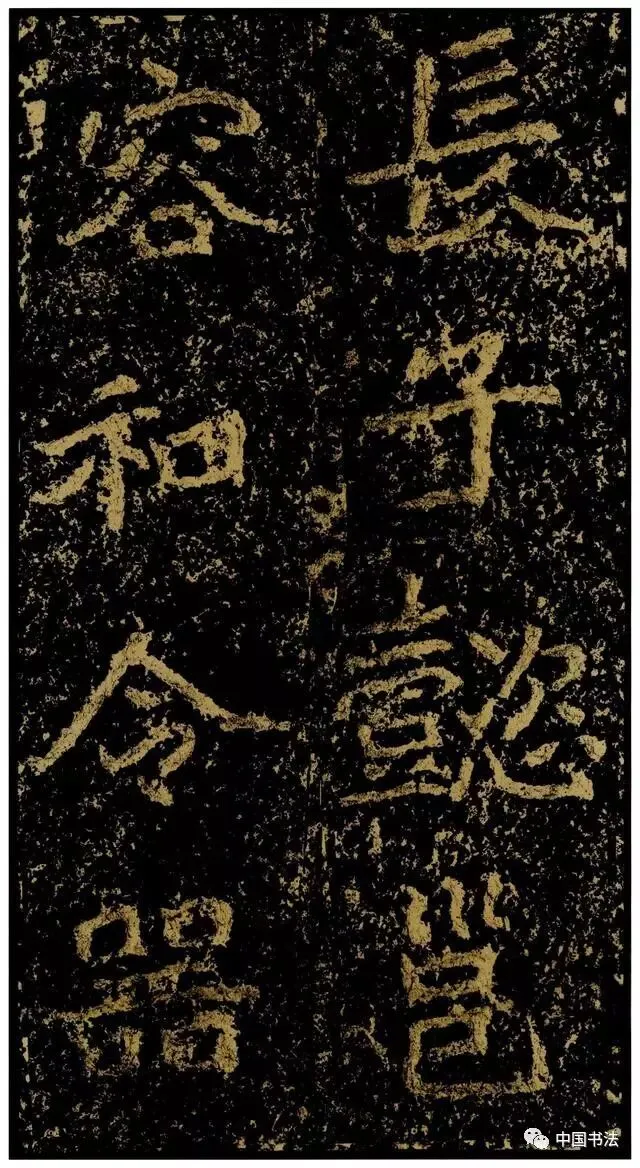 長子懿邕
容和令器
中国书法